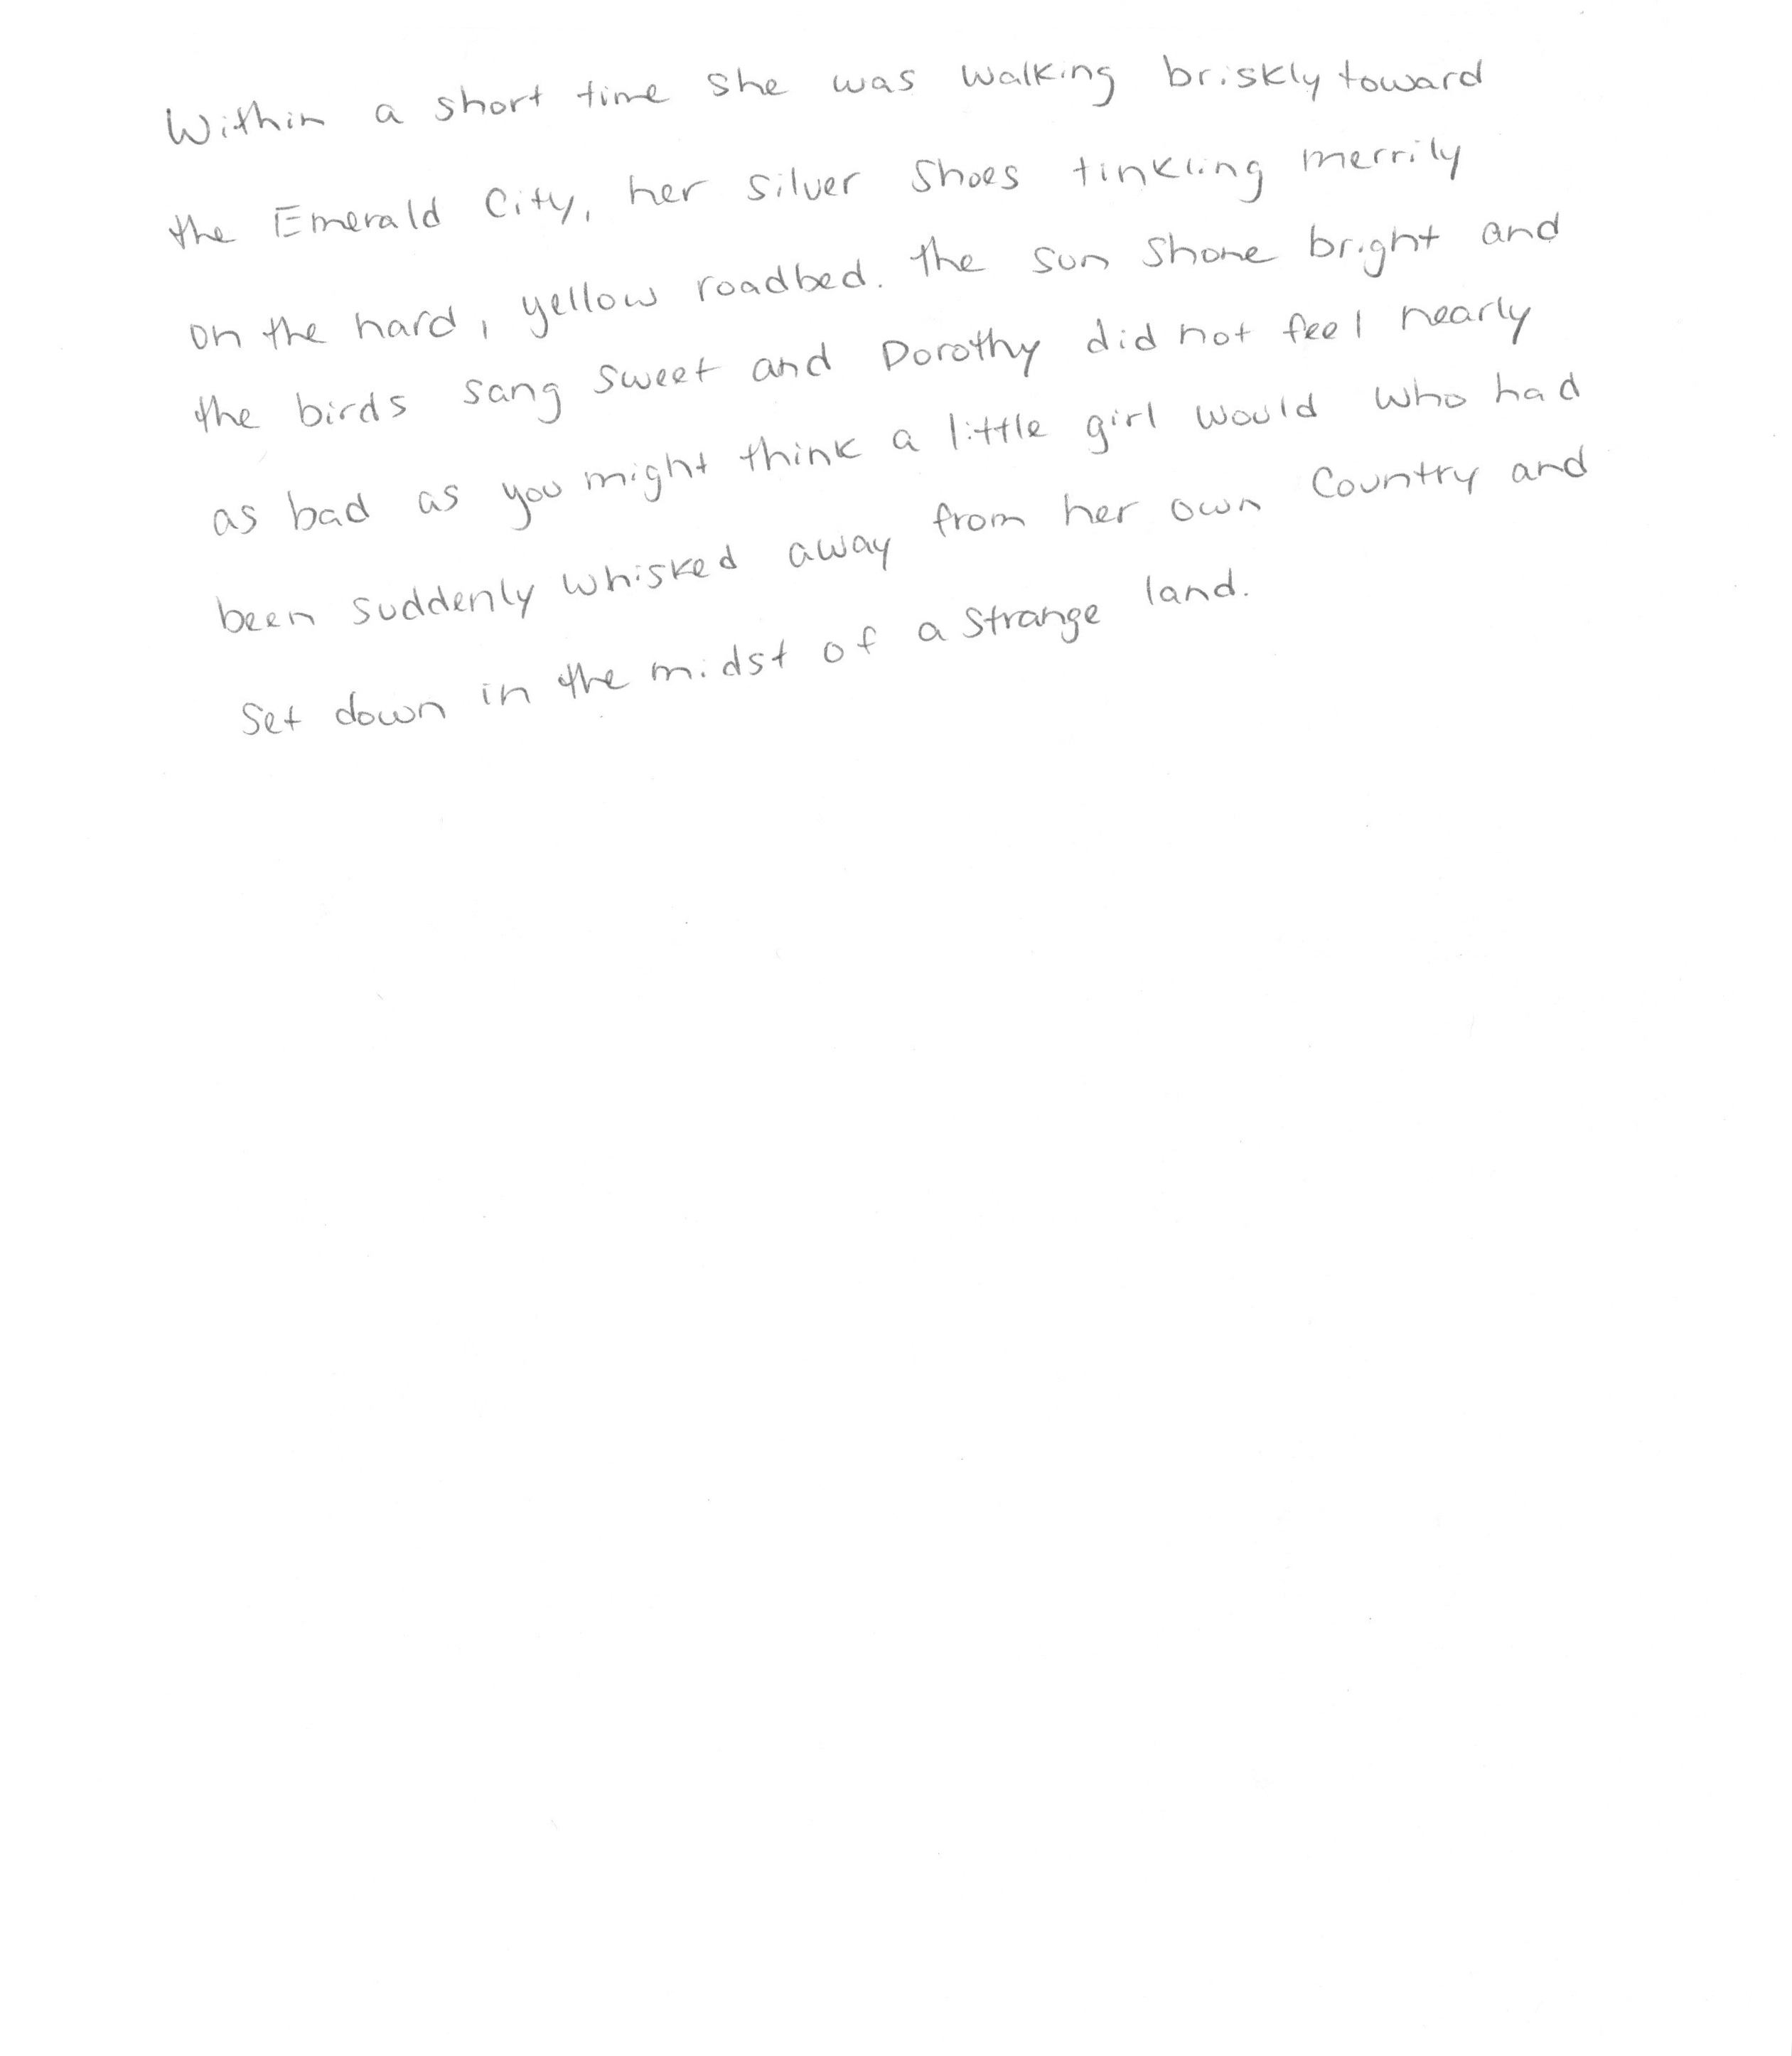 Within a short time she was walking briskly toward
the Emerald City, her silver shoes tinkling merrily
on the hard, yellow roadbed. the sun shone bright and
the birds sang sweet and Dorothy did not feel nearly
as bad as you might think a little girl would who had
been suddenly whisked away from her own country and
set down in the midst of a strange land.